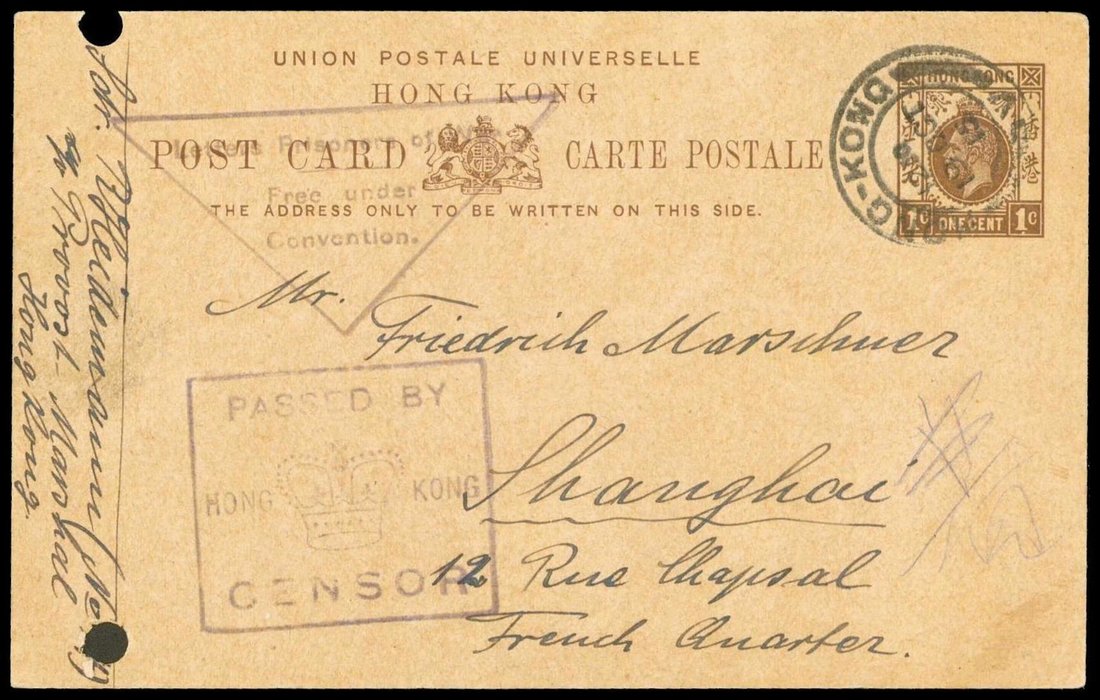 UNION POSTALE UNIVERSELLE
HONG KONG
POST CARD CARTE POSTALE
THE ADDRESS ONLY TO BE WRITTEN ON THIS SIDE.
Prisoners of
Free under
Convention.
HONG KONG
香港
1C ONE CENT 1C
G-KONG
Mr. Friedrich Marschner
Shanghai
12 Rue Chapsal
French Quarter.
PASSED BY
HONG KONG
CENSOR
c/o Provost Marshal
Hong Kong.